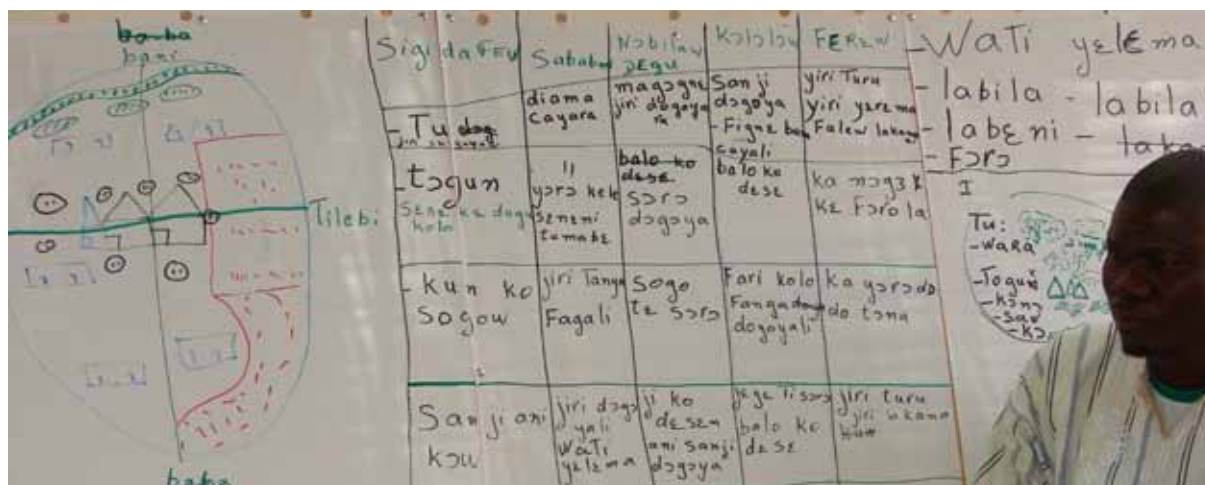 bani
Tilebi
baba
Sigida FEW
Sababu
KƆlƆlƆw
FEREW
- Tu
diama
cayara
magƆɲɛ
jiri dƆgƆya
ra
Sanji
dƆgƆya
- Figne ban
cayali
yiri Turu
yiri yɛrɛma
Falew lakana
- tƆgun
kolo
yƆrƆ kele
sɛnɛni
tumabɛ
balo ko
dɛsɛ
sƆrƆ
dƆgƆya
balo ko
dɛsɛ
kɛ ForƆ la
- kun ko
sogow
jiri Tanya
Fagali
Sogo
tɛ sƆrƆ
Fari kolo
Fanga
dogoyali
ka yƆrƆ dƆ
do tƆna
Sanji ani
kƆw
jiri dƆgƆ
yali
Wati
yɛlɛma
ji ko
dɛsɛn
ani sanji
dƆgƆya
jɛgɛ Ti sƆrƆ
balo ko
dɛsɛ
jiri turu
- Wati yɛlɛma
- labila - labila
- labɛni -
- FƆrƆ
I
Tu:
- waRa
- Togun
- kƆnƆ